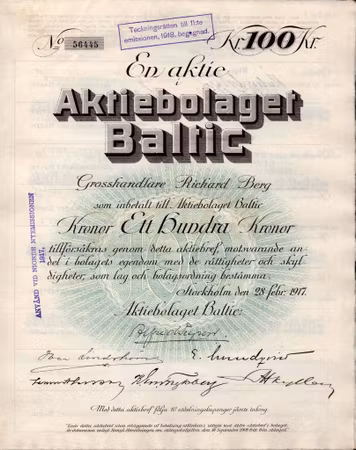 No 56445
Teckningsrätten till 11te
emissionen, 1918, begagnad.
Kr. 100 Kr.
En aktie
Aktiebolaget
Baltic
Grosshandlare Richard Berg
som inbetalt till Aktiebolaget Baltic
Kronor Ett Hundra Kronor
tillförsäkras genom detta aktiebref, motsvarande an-
del i bolagets egendom med de rättigheter och skyl-
digheter, som lag och bolagsordning bestämma.
Stockholm den 28 febr. 1917.
Aktiebolaget Baltic:
ANVÄND VID NIONDE NYEMISSIONEN
1917.
E. Lundqvist
Med detta aktiebref följa 10 utdelningskuponger jämte talong.